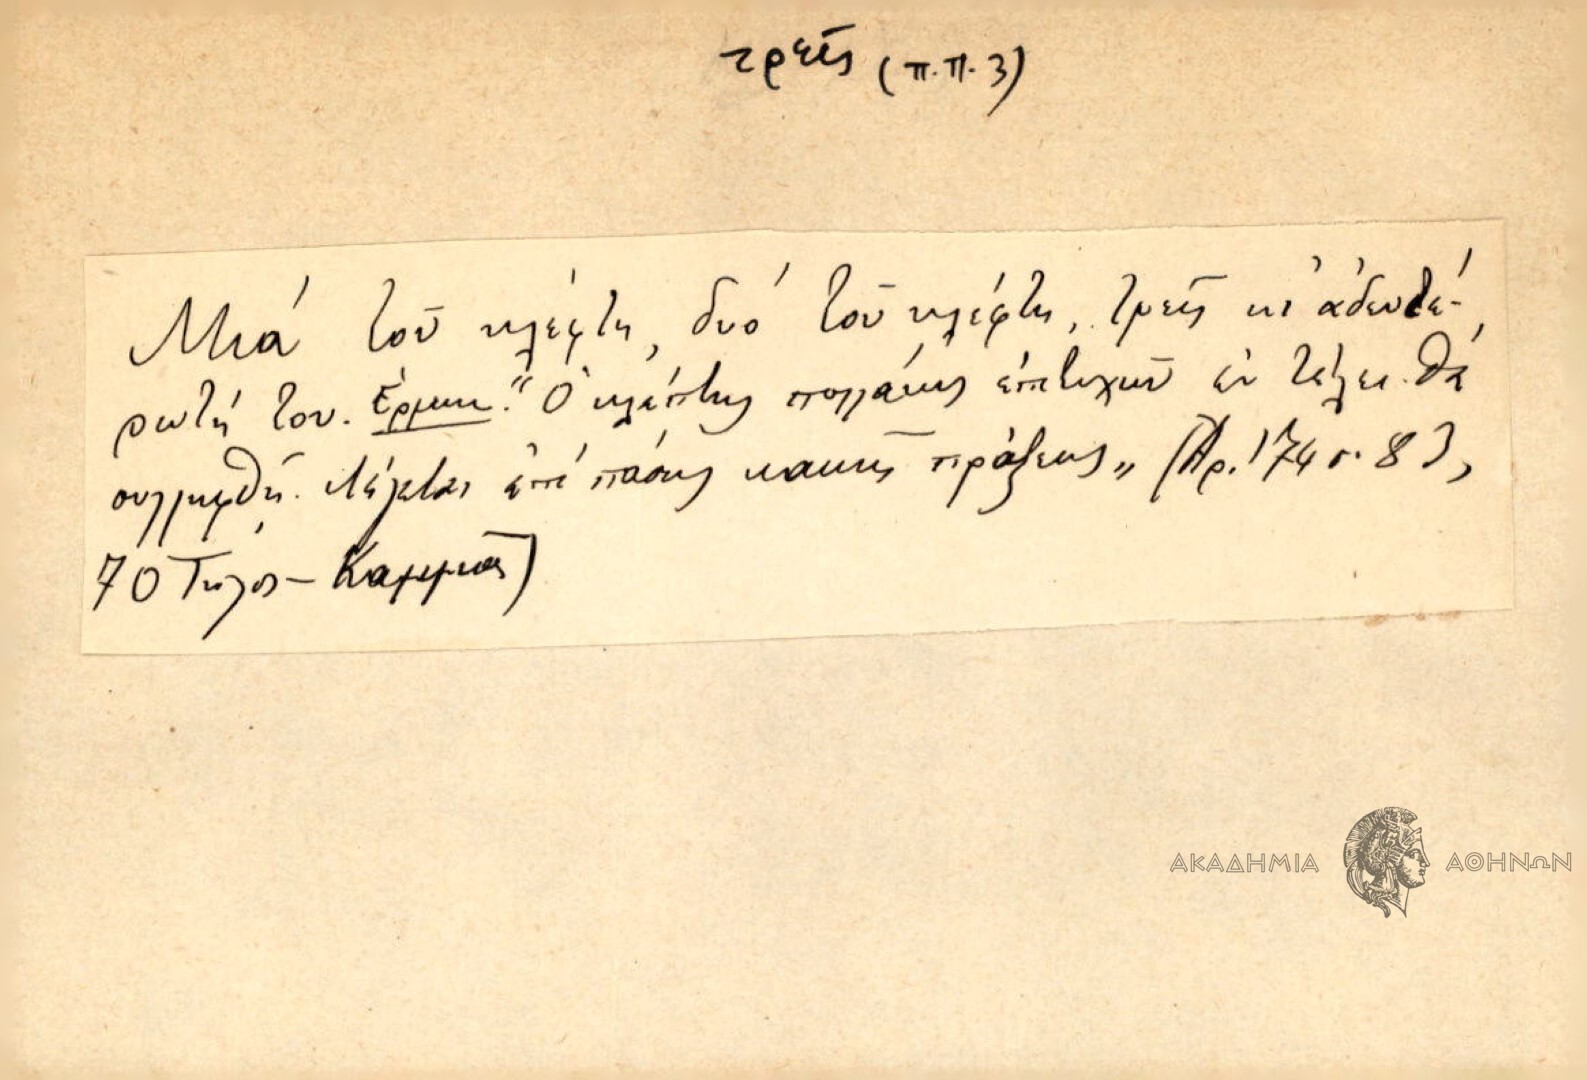 τρεῖς (π.π. 3)
Μιά τοῦ κλέφτη, δυό τοῦ κλέφτη, τρεῖς κι' ἀδευτέ-
ρωτή του. Ἑρμην. "Ὁ κλέπτης πολλάκις ἐπιτυχών ἐν τέλει θά
συλληφθῇ. Λέγεται ἐπί πάσης κακῆς πράξεως,, (Ἀρ. 174 σ. 83,
70 Τῆλος –
ΑΚΑΔΗΜΙΑ ΑΘΗΝΩΝ